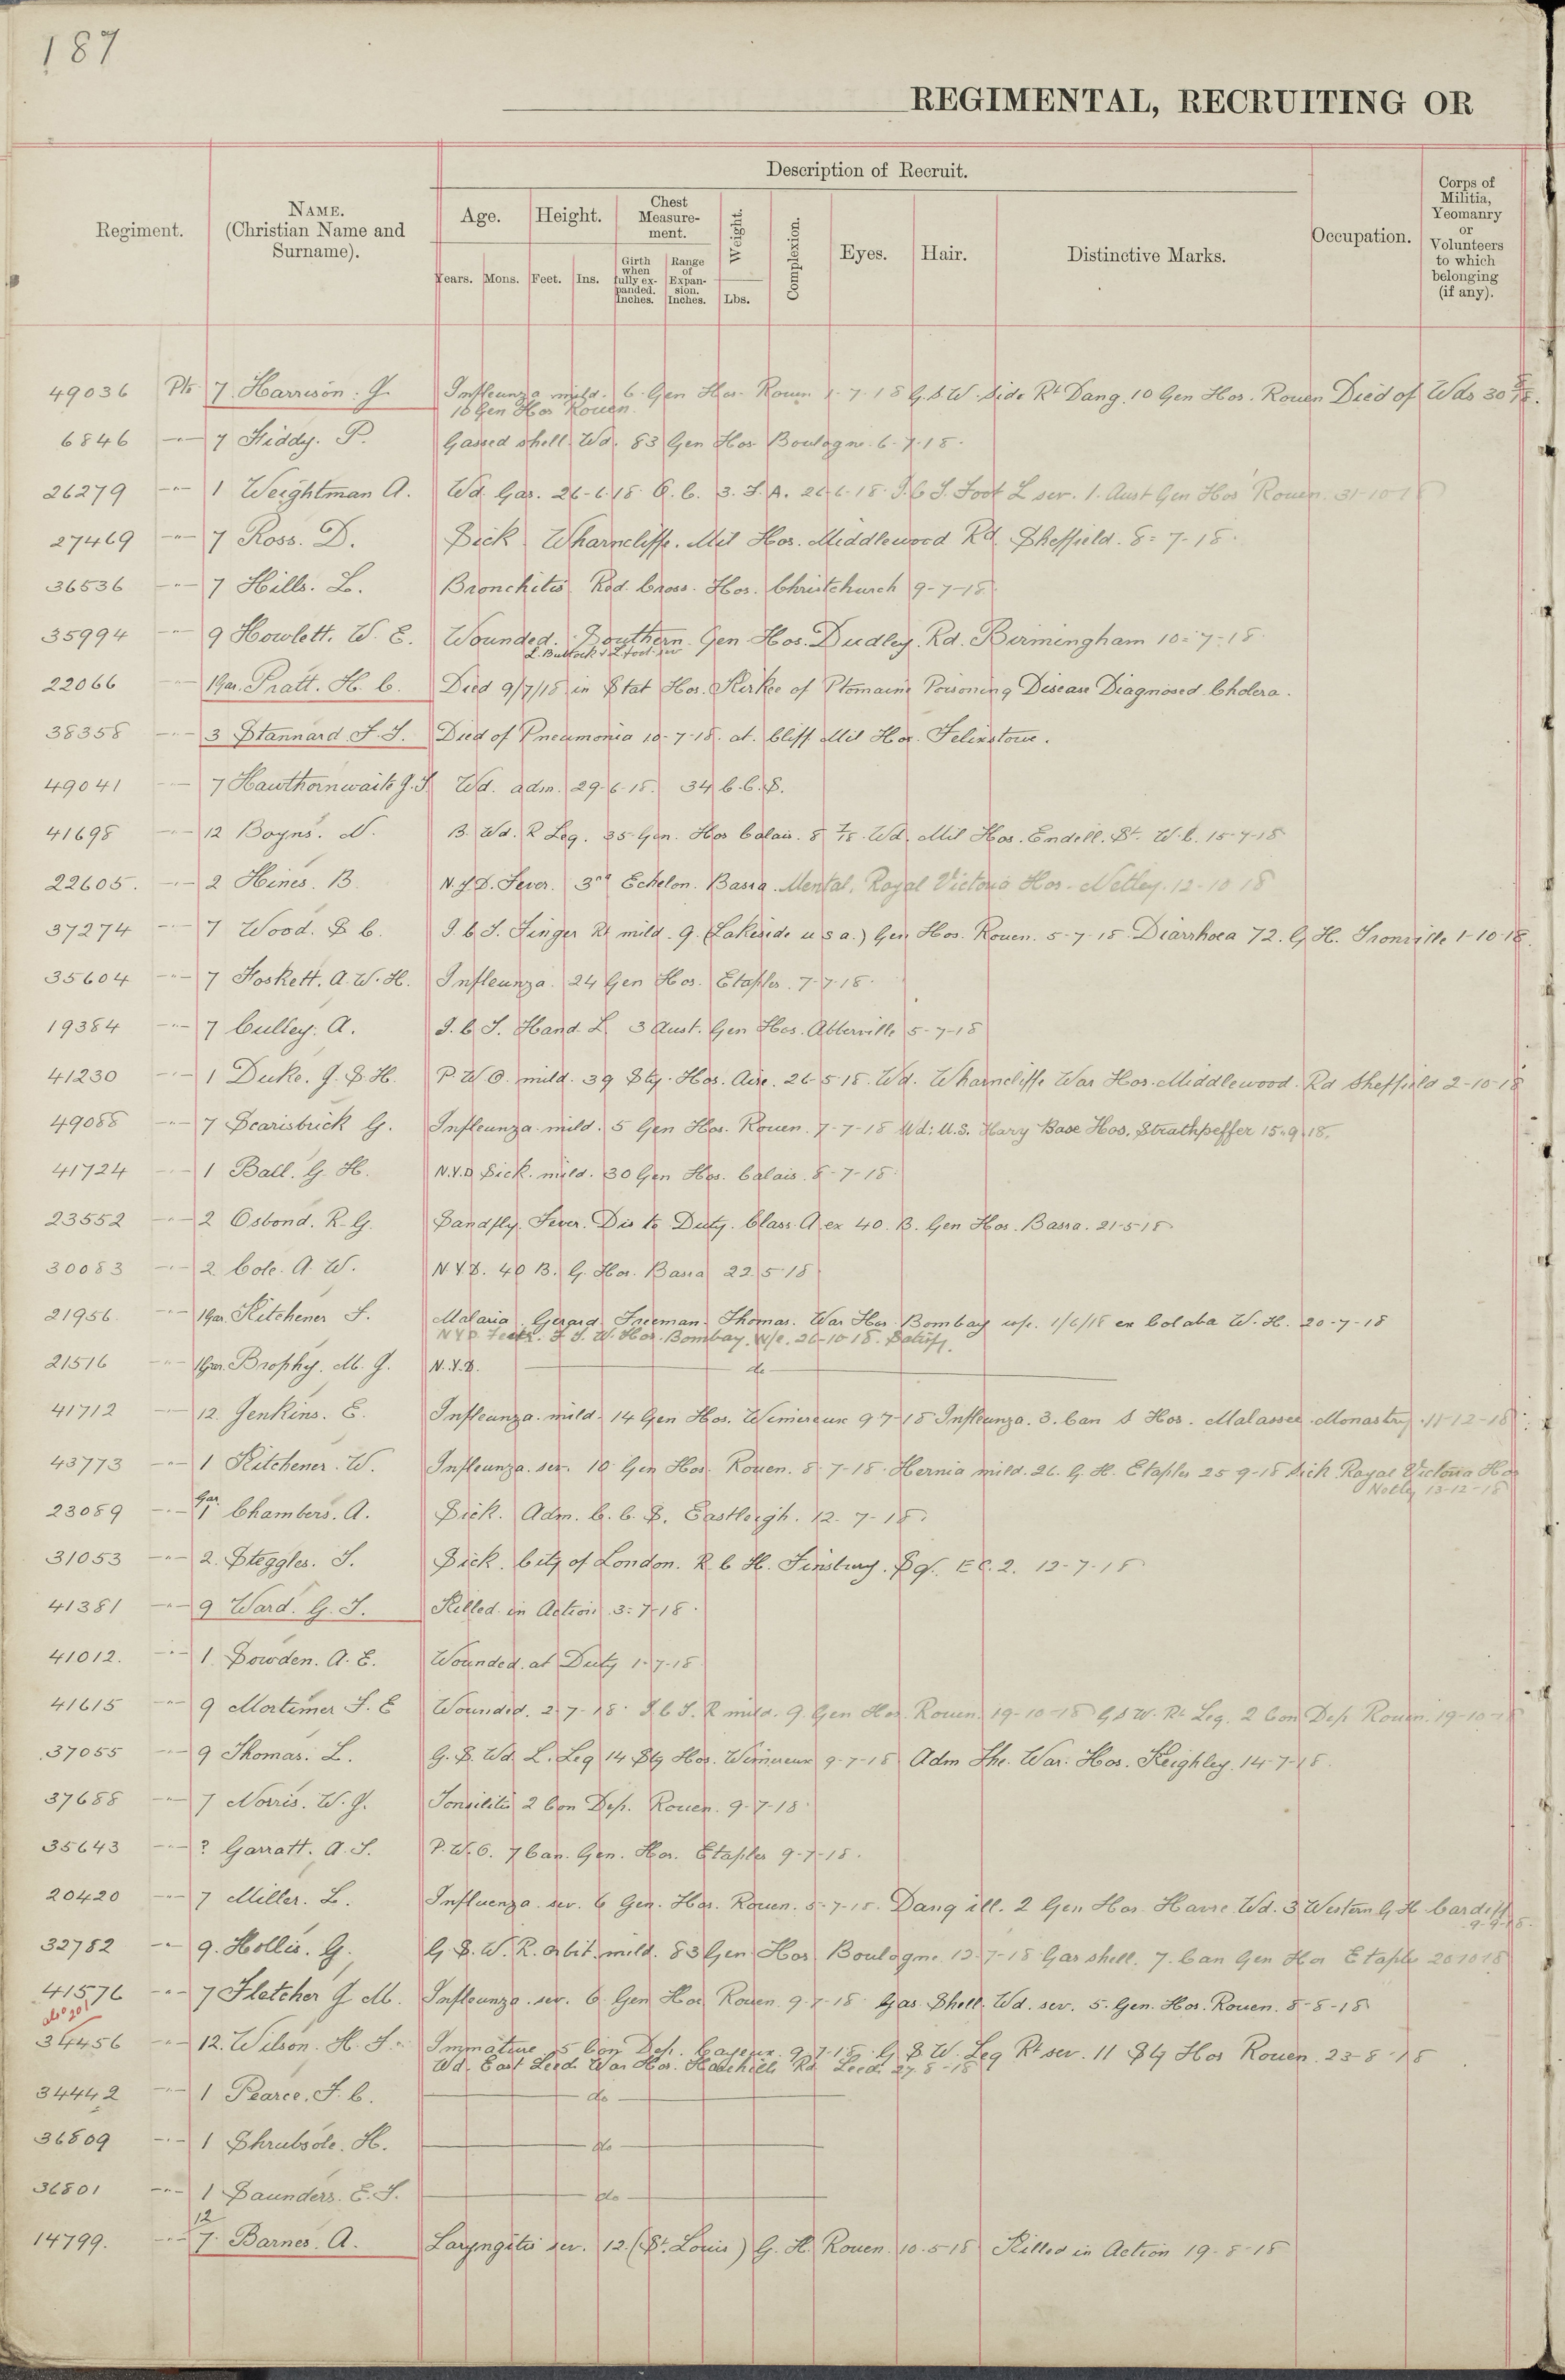 187
REGIMENTAL, RECRUITING OR
Description of Recruit.
Regiment.
NAME.
(Christian Name and
Surname).
Age.
Height.
Chest
Measure-
ment.
Weight.
Complexion.
Eyes.
Hair.
Distinctive Marks.
Occupation.
Corps of
Militia,
Yeomanry
or
Volunteers
to which
belonging
(if any).
Years.
Mons.
Feet.
Ins.
Girth
when
fully ex-
panded.
Inches.
Range
of
Expan-
sion.
Inches.
Lbs.
49036 Pte 7 Harrison. J. Infleunza mild. 6 Gen Hos. Rouen 1-7-18 G.S.W. side Rt Dang. 10 Gen Hos. Rouen Died of Wds 30 8/18.
10 Gen Hos Rouen.
6846 -"- 7 Kiddy. P. Gassed shell Wd. 83 Gen Hos Boulogne 6-7-18.
26279 -"- 1 Weightman A. Wd. Gas. 26-6-18. 3. F.A. 26-6-18. I.C.T. Foot L sev. 1. Aust Gen Hos Rouen. 31-10-18
27469 -"- 7 Ross. D. Sick Wharncliffe. Mil Hos. Middlewood Rd. Sheffield. 8-7-18.
36536 -"- 7 Hills. L. Bronchitis Red. Cross. Hos. Christchurch 9-7-18.
35994 -"- 9 Howlett. W. E. Wounded. Southern Gen Hos. Dudley. Rd. Birmingham 10-7-18.
L. Buttock & L. foot sev
22066 -"- 1 Gar. Pratt. H. C. Died 9/7/18 in Stat Hos. Kirkee of Ptomaine Poisoning Disease Diagnosed Cholera.
38358 -"- 3 Stannard. F. T. Died of Pneumonia 10-7-18. at. Cliff Mil Hos. Felixstowe.
49041 -"- 7 Hawthornwaite J. T. Wd. adm. 29-6-18. 34 C.C.S.
41698 -"- 12 Boyns. N. B. Wd. R Leg. 35 Gen. Hos Calais. 8 7/18. Wd. Mil Hos. Endell. St. W.C. 15-7-18
22605. -"- 2 Hines. B. N.Y.D. Fever. 3rd Echelon. Basra. Mental. Royal Victoria Hos. Netley. 12-10-18
37274 -"- 7 Wood. S C. I.C.T. Finger Rt mild. 9. (Lakeside u s a.) Gen Hos. Rouen. 5-7-18. Diarrhoea 72. G. H. Trouville 1-10-18.
35604 -"- 7 Foskett. A. W. H. Infleunza. 24 Gen Hos. Etaples. 7-7-18.
19384 -"- 7 Culley. A. I.C.T. Hand. L. 3 Aust. Gen Hos. Abberville 5-7-18
41230 -"- 1 Duke. J. S. H. P.U.O. mild. 39 Sty. Hos. Aire. 26-5-18. Wd. Wharncliffe War Hos. Middlewood. Rd Sheffield 2-10-18
49088 -"- 7 Scarisbrick G. Infleunza mild. 5 Gen Hos. Rouen. 7-7-18 Wd: U.S. Navy Base Hos. Strathpeffer 15-9-18.
41724 -"- 1 Ball. G. H. N.Y.D Sick. mild. 30 Gen Hos. Calais. 8-7-18
23552 -"- 2 Osbond. R. G. Sandfly. Fever. Dis to Duty. Class A ex 40. B. Gen Hos. Basra. 21-5-18
30083 -"- 2 Cole. A. W. N.Y.D. 40 B. G. Hos. Basra 22.5-18
21956 -"- 1 Gar. Kitchener F. Malaria. Gerard. Freeman. Thomas. War Hos. Bombay w/e. 1/6/18 ex Colaba W. H. 20-7-18
F. T. W. Hos. Bombay. W/e. 26-10-18. Satisfy.
21516 -"- 1 Gar. Brophy. M. J. N.Y.D. do
41712 -"- 12. Jenkins. E. Infleunza. mild. 14 Gen Hos. Wimereux 9-7-18 Infleunza. 3. Can S Hos. Malassee Monastry. 11-12-18
43773 -"- 1 Kitchener. W. Infleunza. sev. 10 Gen Hos. Rouen. 8-7-18. Hernia mild. 26. G. H. Etaples 25-9-18 Sick Royal Victoria Hos
Netley 13-12-18
23089 -"- Gar 1 Chambers. A. Sick. Adm. C. C. S. Eastleigh. 12. 7-18.
31053 -"- 2. Steggles. T. Sick. City of London. R. C H. Finsbury. Sq. E C. 2. 12-7-18
41381 -"- 9 Ward. G. T. Killed in Action 3-7-18.
41012. -"- 1 Sowden. A. E. Wounded. at Duty 1-7-18
41615 -"- 9 Mortimer F. E Wounded. 2-7-18. I.C.T. R mild. 9. Gen Hos. Rouen. 19-10-18 G S W. Rt Leg. 2 Con Dep Rouen. 19-10-18
37055 -"- 9 Thomas. L. G. S. Wd. L. Leg 14 Sty Hos. Wimereux 9-7-18 Adm The. War. Hos. Keighley. 14-7-18.
37688 -"- 7 Norris. W. J. Tonsilitis 2 Con Dep. Rouen. 9-7-18.
35643 -"- ? Garratt. A. T. P.U.O. 7 Can. Gen. Hos. Etaples 9-7-18.
20420 -"- 7 Miller. L. Influenza. sev. 6 Gen. Hos. Rouen. 5-7-18. Dang ill. 2 Gen Hos. Havre. Wd. 3 Western G H Cardiff
9-9-18.
32782 -"- 9. Hollis. G. G. S. W. R. Orbit. mild. 83 Gen Hos Boulogne. 12-7-18 Gas shell. 7. Can Gen Hos Etaples 20 10 18
41576 -"- 7 Fletcher J M. Infleunza. sev. 6 Gen Hos Rouen. 9-7-18 Gas Shell. Wd. sev. 5. Gen. Hos. Rouen. 8-8-18
also 201
34456 -"- 12. Wilson. H. F. Immature 5 Con Dep. Cayeux. 9-7-18. G S W. Leg Rt sev. 11 Sty Hos Rouen. 23-8-18
Wd. East Leeds War Hos. Harehills Rd Leeds 27-8-18
34442 -"- 1 Pearce. F. C. do
36809 -"- 1 Shrubsole. H. do
36801 -"- 1 Saunders. E. T. do
12
14799. -"- 7. Barnes. A. Laryngitis sev. 12. (St. Louis) G. H. Rouen. 10-5-18 Killed in Action 19-8-18